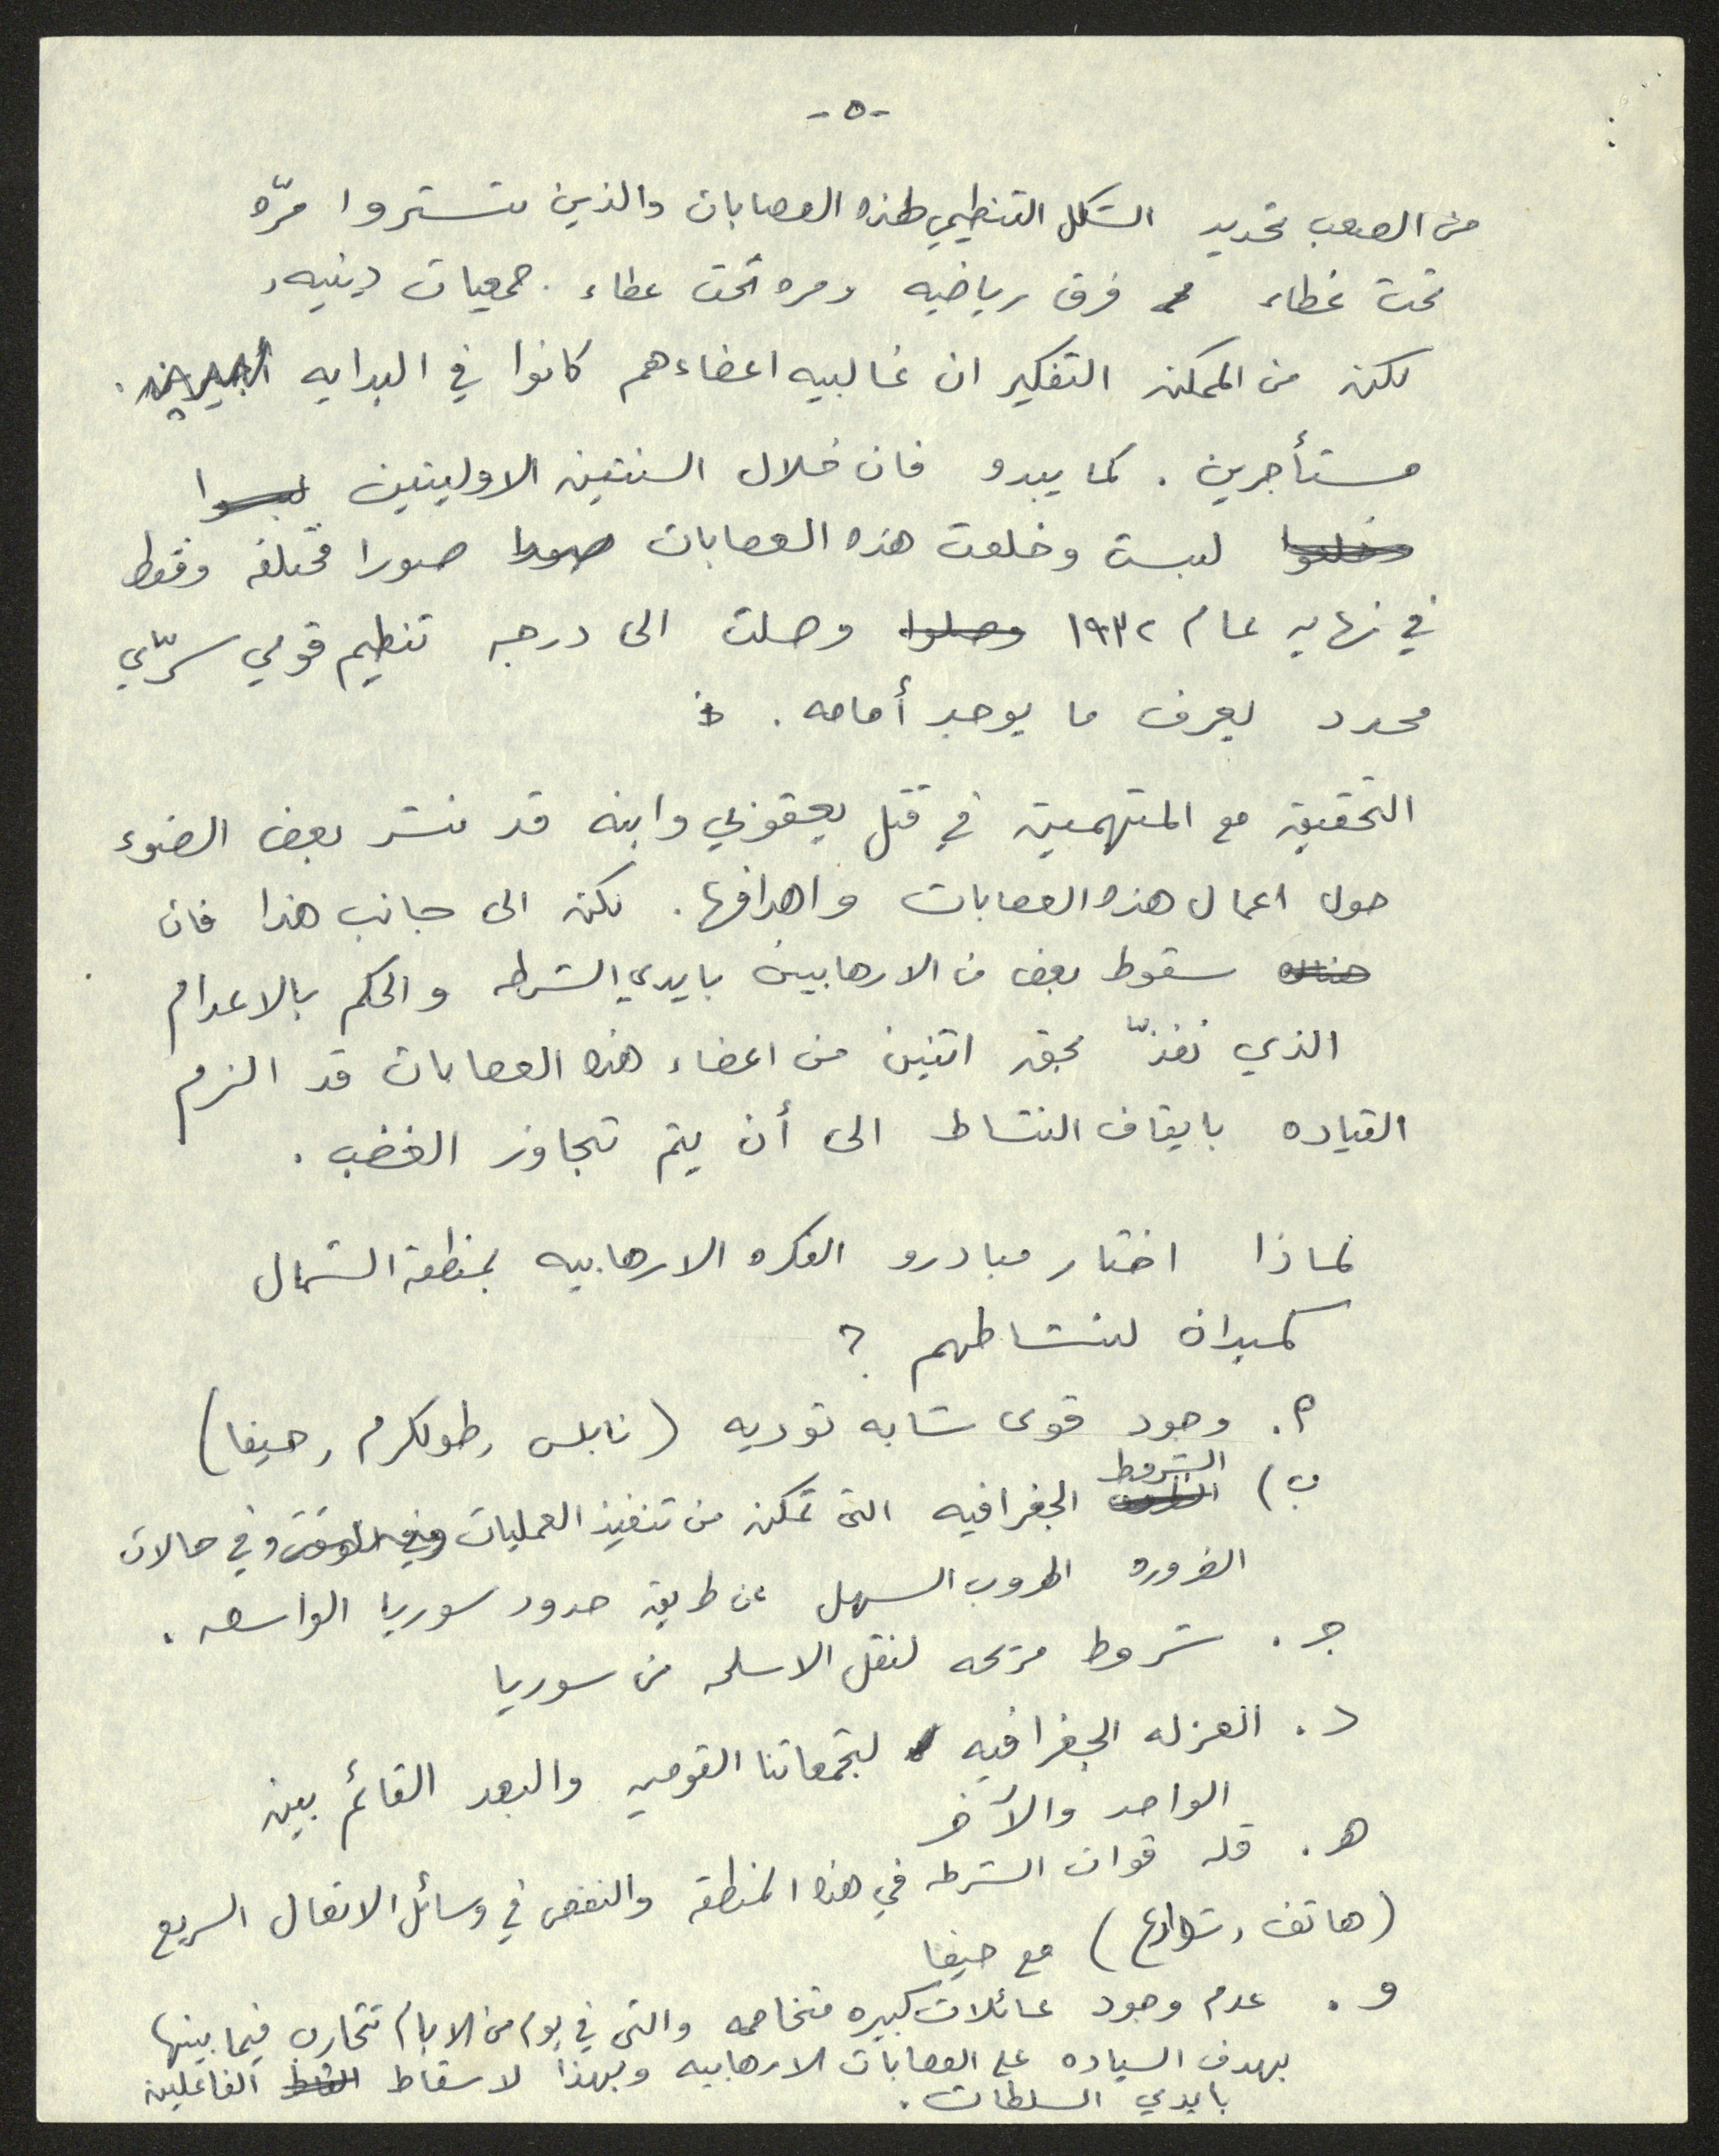 -٥-
من الصعب تحديد الشكل التنظيمي لهذه العصابات والذين تستروا مرّه
تحت غطاء فرق رياضيه ومره تحت عطاء جمعيات دينيه,
لكن من الممكن التفكير ان غالبيه اعضاءهم كانوا في البدايه
مستأجرين . كما يبدو فان خلال السنتين الاوليتين لبسوا
وخلعوا لبست وخلعت هذه العصابات صورا صورا مختلفه وفقط
في نهايه عام ١٩٣٢ وصلوا وصلت الى درجه تنظيم قومي سرّي
محدد يعرف ما يوجد أمامه .
التحقيق مع المتهمين في قتل يعقوبي وابنه قد نشر بعض الضوء
حول اعمال هذه العصابات واهدافها . لكن الى جانب هذا فان
هناك سقوط بعض من الارهابيين بايدي الشرطه والحكم بالاعدام
الذي نفذّ بحق اثنين من اعضاء هذه العصابات قد الزم
القياده بايقاف النشاط الى أن يتم تجاوز الغضب .
لماذا اختار مبادرو الفكره الارهابيه بمنطقة الشمال
كميدان لنشاطهم ?
أ. وجود قوى شابه ثوريه (نابلس , طولكرم , حيفا)
ب) الشروط الجغرافيه التي تمكن من تنفيذ العمليات وفي الوقت وفي حالات
الضروره الهروب السهل عن طريق حدود سوريا الواسعه .
ج . شروط مريحه لنقل الاسلحه من سوريا
د . العزله الجغرافيه لتجمعاتنا القوميه والبعد القائم بين
الواحد والآخر
هـ . قله قوات الشرطه في هذه المنطقه والنقص في وسائل الاتصال السريع
(هاتف , شوارع) مع حيفا
و . عدم وجود عائلات كبيره متخاصمه والتي في يوم من الايام تتحارب فيما بينها
بهدف السياده على العصابات الارهابيه وبهذا لاسقاط الفاعلين
بايدي السلطات .